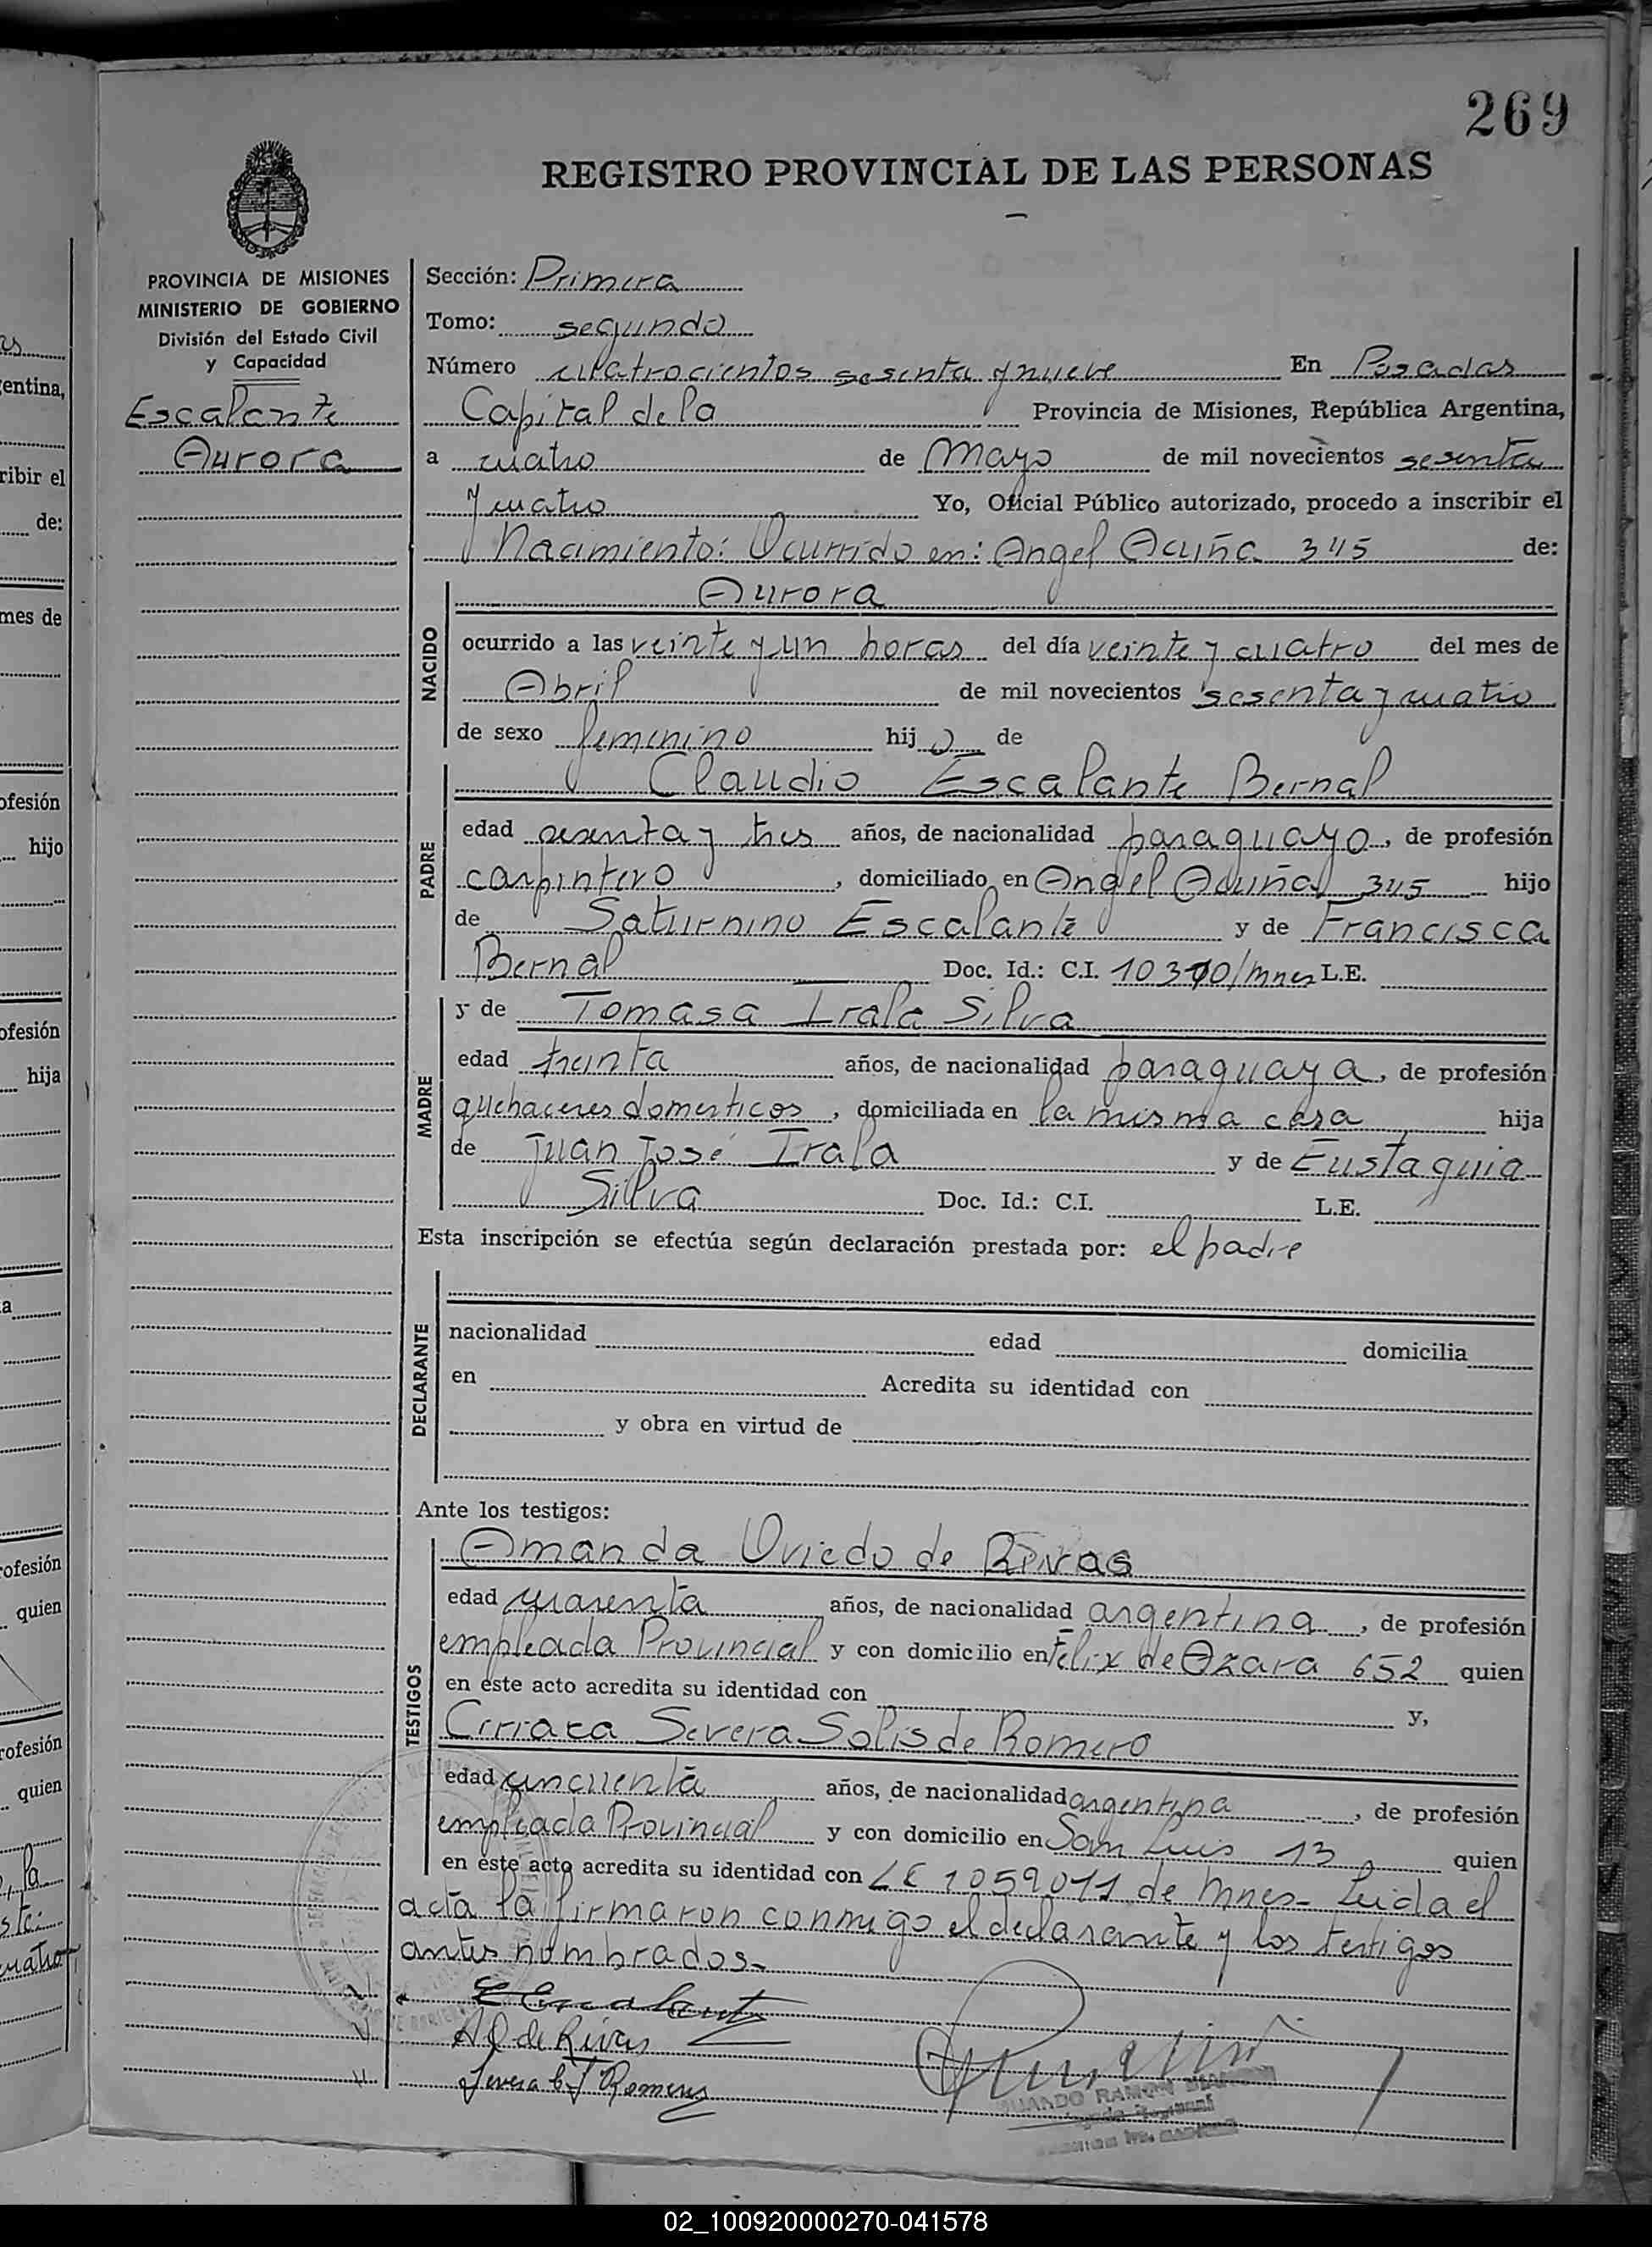 269
REGISTRO PROVINCIAL DE LAS PERSONAS
PROVINCIA DE MISIONES
MINISTERIO DE GOBIERNO
División del Estado Civil
y Capacidad
Escalante
Aurora
Sección: Primera
Tomo: segundo
Número cuatrocientos sesenta y nueve En Posadas
Capital de la Provincia de Misiones, República Argentina,
a cuatro de Mayo de mil novecientos sesenta
y cuatro Yo, Oficial Público autorizado, procedo a inscribir el
Nacimiento: Ocurrido en: Angel Acuña 345 de:
NACIDO
Aurora
ocurrido a las veinte y un horas del día veinte y cuatro del mes de
Abril de mil novecientos sesenta y cuatro
de sexo femenino hij a de
PADRE
Claudio Escalante Bernal
edad sesenta y tres años, de nacionalidad paraguayo, de profesión
carpintero, domiciliado en Angel Acuña 345 hijo
de Saturnino Escalante y de Francisca
Bernal Doc. Id.: C.I. 10370/mnes L.E.
MADRE
y de Tomasa Irala Silva
edad treinta años, de nacionalidad paraguaya, de profesión
quehaceres domesticos, domiciliada en la misma casa hija
de Juan José Irala y de Eustaquia
Silva Doc. Id.: C.I. L.E.
Esta inscripción se efectúa según declaración prestada por: el padre
DECLARANTE
nacionalidad edad domicilia
en Acredita su identidad con
y obra en virtud de
Ante los testigos:
TESTIGOS
Amanda Oviedo de Rivas
edad cuarenta años, de nacionalidad argentina, de profesión
empleada Provincial y con domicilio en Felix de Azara 652 quien
en este acto acredita su identidad con y,
Cirriaca Severa Solis de Romero
edad cincuenta años, de nacionalidad argentina, de profesión
empleada Provincial y con domicilio en San Luis 13 quien
en este acto acredita su identidad con LE 1059011 de Mnes- Leida el
acta la firmaron conmigo el declarante y los testigos
antes nombrados-
Escalante
A O de Rivas
Severa C S Romero
RAMON
02_100920000270-041578